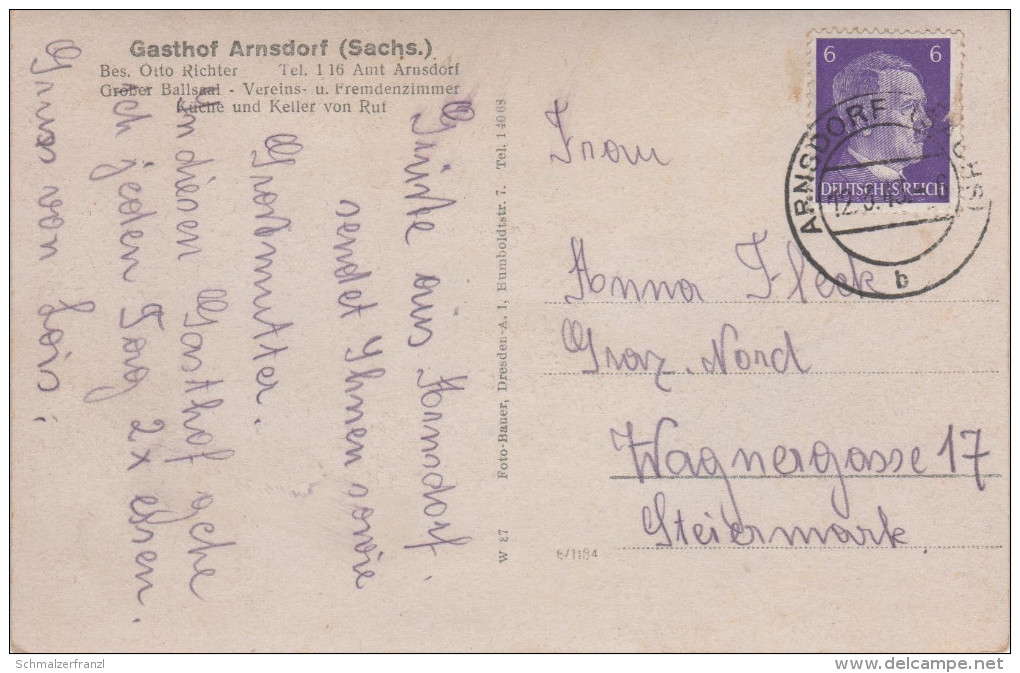 Gasthof Arnsdorf (Sachs.)
Bes. Otto Richter Tel. 116 Amt Arnsdorf
Großer Ballsaal - Vereins- u. Fremdenzimmer
Küche und Keller von Ruf
Grüße aus Arnsdorf.
sendet Ihnen sowie
Großmutter.
In diesen Gasthof gehe
ich jeden Tag 2x essen.
von
W 87 Foto-Bauer, Dresden-A. 1, Humboldtstr. 7. Tel. 14068
6/1184
6 6
DEUTSCHES REICH
ARNSDORF (SACHS)
b
Frau
Anna Fleck
Graz. Nord
Wagnergasse 17
Steiermark
Schmalzerfranzl
www.delcampe.net